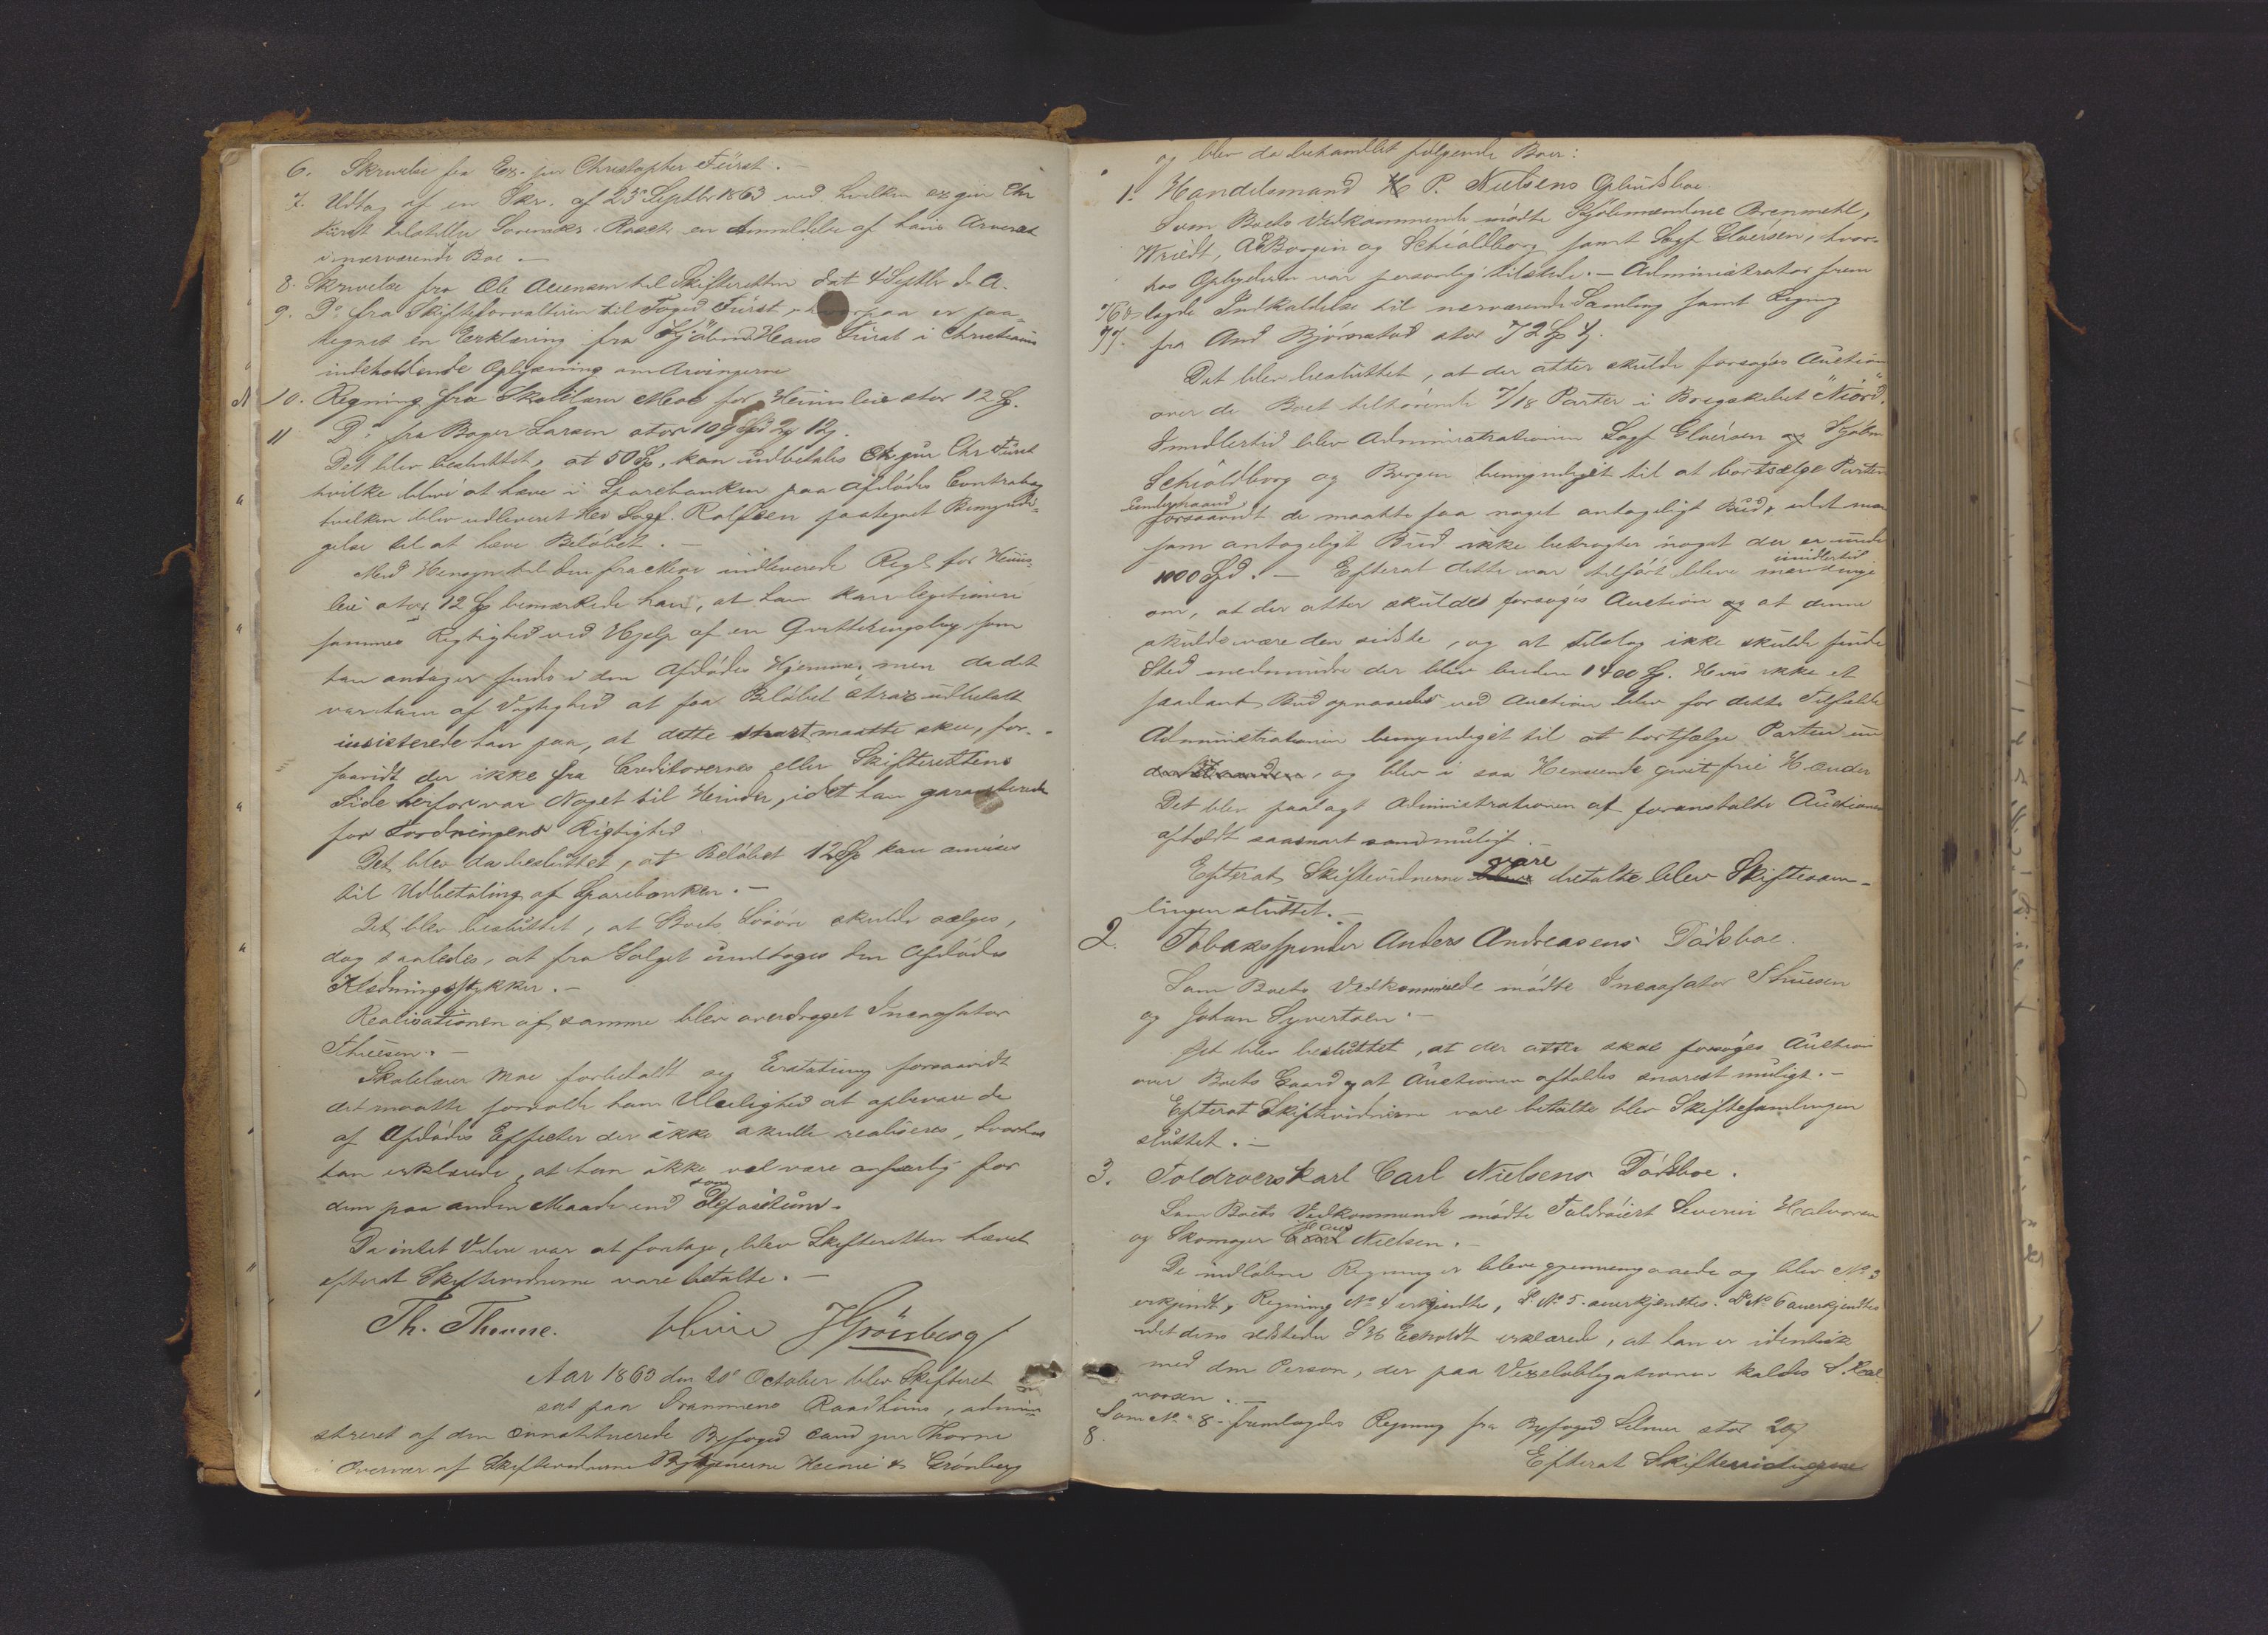 6. Skrivelse fra Ex. jur Christopher Fürst. –
7. Udtog af en Skr. af 25 Septbr 1863 ved hvilken ex jur Chr
Fürst tilstiller Sorenskr. Rasch en Anmeldelse af hans Arveret
i nærværende Boe. –
8. Skrivelse fra Ole Avensen til Skifteretten dat 4 Septbr d. A.
9. Do fra Skifteforvalteren til Foged Fürst, hvorpaa er paa-
tegnet en Erklæring fra Kjöbmd Hans Fürst i Christiania
indeholdende Oplysning om Arvingerne
10. Regning fra Skolelærer Moe for Huusleie stor 12 Sp.
11 Do fra Bager Larsen stor 10
Det blev besluttet, at 50 Sp. kan udbetales Ex. jur Chr Fürst
hvilke blive at hæve i Sparebanken paa Afdödes Contrabog
hvilken blev udleveret Her Sagf. Rolfsen paategnet Bemyndi-
gelse til at hæve Belöbet. –
Med Hensyn til den indleverede Regl for Huus-
leie stor 12 Sp bemærkede han, at han kan legitimere
sammes Rigtighed ved Hjelp af en Qvitteringsbog som
han antager findes i den Afdödes Hjemme, men da det
var ham af Vigtighed at faa Belöbet strax udbetalt
insisterede han paa, at dette snart maatte skee, for-
saavidt der ikke fra Creditorernes eller Skifterettens
Side herfor var Noget til Hinder, idet han garanterede
for Fordringens Rigtighed
Det blev da besluttet, at Belöbet 12 Sp kan anvises
til Udbetaling af Sparebanken. –
Det blev besluttet, at Boets Lösöre skulde sælges,
dog saaledes, at fra Salget undtoges den Afdödes
Klædningsstykker. –
Realisationen af samme blev overdraget Incassator
Thuesen. –
Skolelærer Moe forbeholdt sig Erstatning forsaavidt
det maatte forvolde ham Uleilighed at opbevare de
af Afdödes Effecter der ikke skulle realiseres, hvorhos
han erklærede, at han ikke vil være ansvarlig for
dem paa anden Maade end som Depositum.
Da intet Videre var at foretage, blev Skifteretten hævet
efterat Skiftevidnerne vare betalte. –
Th. Thorne. Heine HGrönberg
Aar 1863 den 20 October blev Skifteret
sat paa Drammens Raadhuus, admini-
streret af den constituerede Byfoged cand jur Thorne
i Overvær af Skiftevidnerne Bytjenerne Heine & Grönberg
og blev da behandlet fölgende Boer:
1. Handelsmand H P. Nielsens Opbudsboe.
Som Boets Vedkommende mödte Kjöbmændene Brenmehl,
Wriedt, A Borgen og Schioldborg samt Sagf Gloersen, hvor-
hos Opbyderen var personlig tilstede. – Administrator frem
76 & lagde Indkaldelse til nærværende Samling samt Regning
77. fra And Bjórnstad stor 72
Det blev besluttet, at der atter skulde forsöges Auction
over de Boet tilhörende 7/18 Parter i Brigskibet "Niörd".
Imidlertid blev Administrationen Sagf Gloersen og Kjöbm
Schioldborg og Borgen bemyndiget til at bortsælge Parten
underhaand
forsaavidt de maatte faa noget antageligt Bud, idet man
som antageligt Bud ikke betragter noget der er under
1100 Spd. – Efterat dette var tilfört bleve imidlertid
om, at der atter skulde forsöges Auction og at denne
skulde være den sidste, og at Tilslag ikke skulde finde
Sted medmindre der blev buden 1400 Sp. Hvis ikke et
saadant Bud opnaaedes ved Auction blev for dette Tilfælde
Administrationen bemyndiget til at bortsælge Parten un
derhaanden, og blev i saa Henseende givet frie Hænder
Det blev paalagt Administrationen at foranstalte Auctionen
afholdt saasnart som muligt. –
Efterat Skiftevidnerne vare betalte blev Skiftesam-
lingen sluttet. –
2. Tobaksspinder Anders Andreasens Dödsboe.
Som Boets Vedkommende mödte Incassator Thuesen
og Johan Syvertsen. –
Det blev besluttet, at der atter skal forsöges Auction
over Boets Gaard og at Auctionen afholdes snarest muligt. –
Efterat Skiftevidnerne vare betalte blev Skiftesamlingen
sluttet. –
3. Toldroerskarl Carl Nielsens Dödsboe.
Som Boets Vedkommende mödte Severin Halvorsen
og Skomager Hans Nielsen. –
De indlöbne Regninger bleve gjennemgaaede og blev No 3
erkjendt, Regning No 4 erkjendtes, Do No 5. anerkjendtes. Do No 6 anerkjendtes
idet den tilstedev. erklærede, at han er identisk
med den Person, der paa Vexelobligationen kaldes S. Hal
vorsen. –
Som No 8 fremlagdes Regning fra Byfoged stor
8.
Efterat Skiftevidnerne